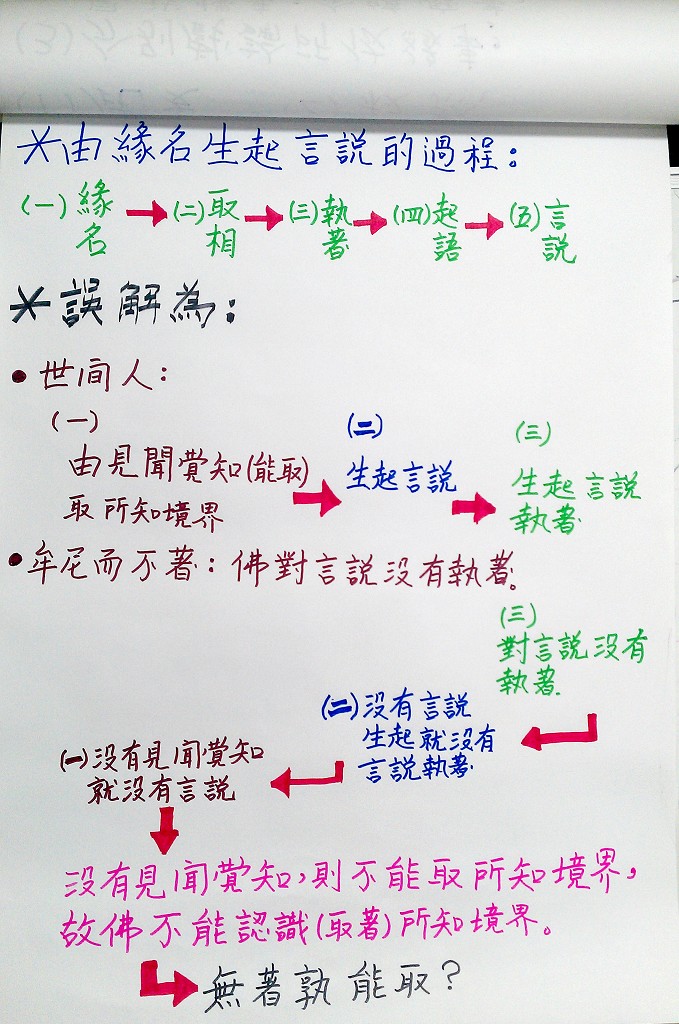 *由緣名生起言說的過程：
(一)緣名→(二)取相→(三)執著→(四)起語→(五)言說
*誤解為：
•世间人：
(一) (二) (三)
由見聞覺知(能取) 生起言說 生起言說
取所知境界 執著
•牟尼而不著：佛對言說没有執著。
(三)
對言說没有
執著.
(二)没有言說
生起就没有
言說執著
(一)没有見聞覺知
就没有言說
没有見聞覺知，則不能取所知境界，
故佛不能認識(取著)所知境界。
無著孰能取？